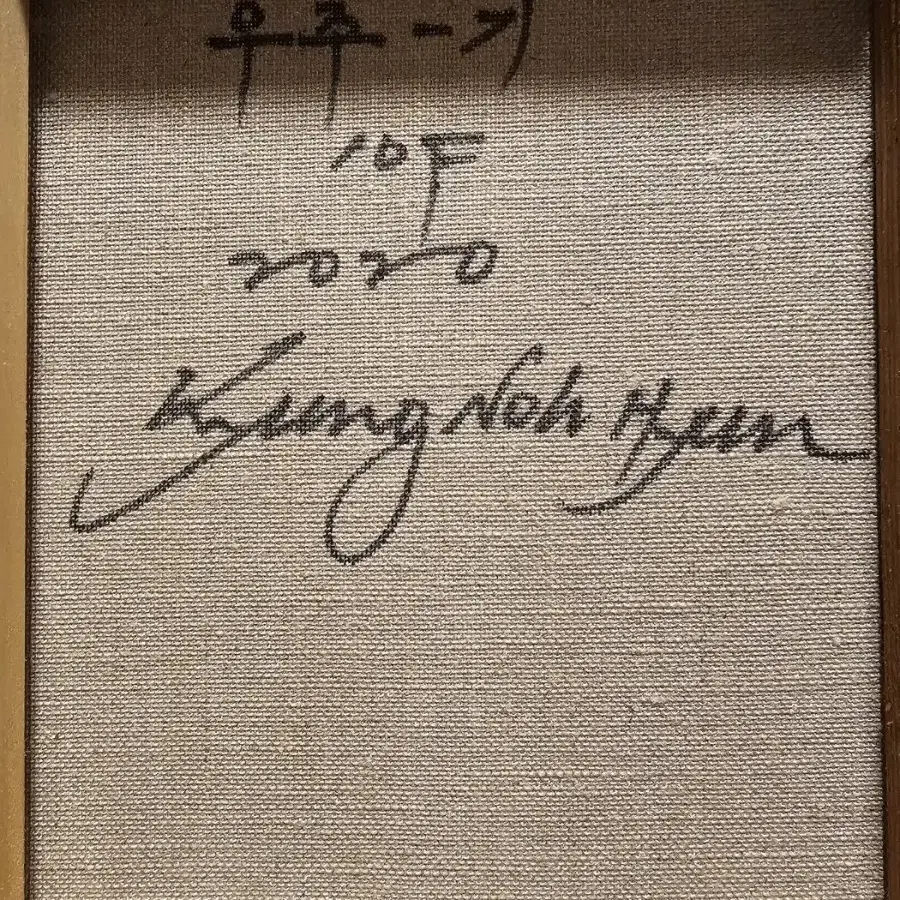 우주-기
10F
2020
Kyung Noh Hyun